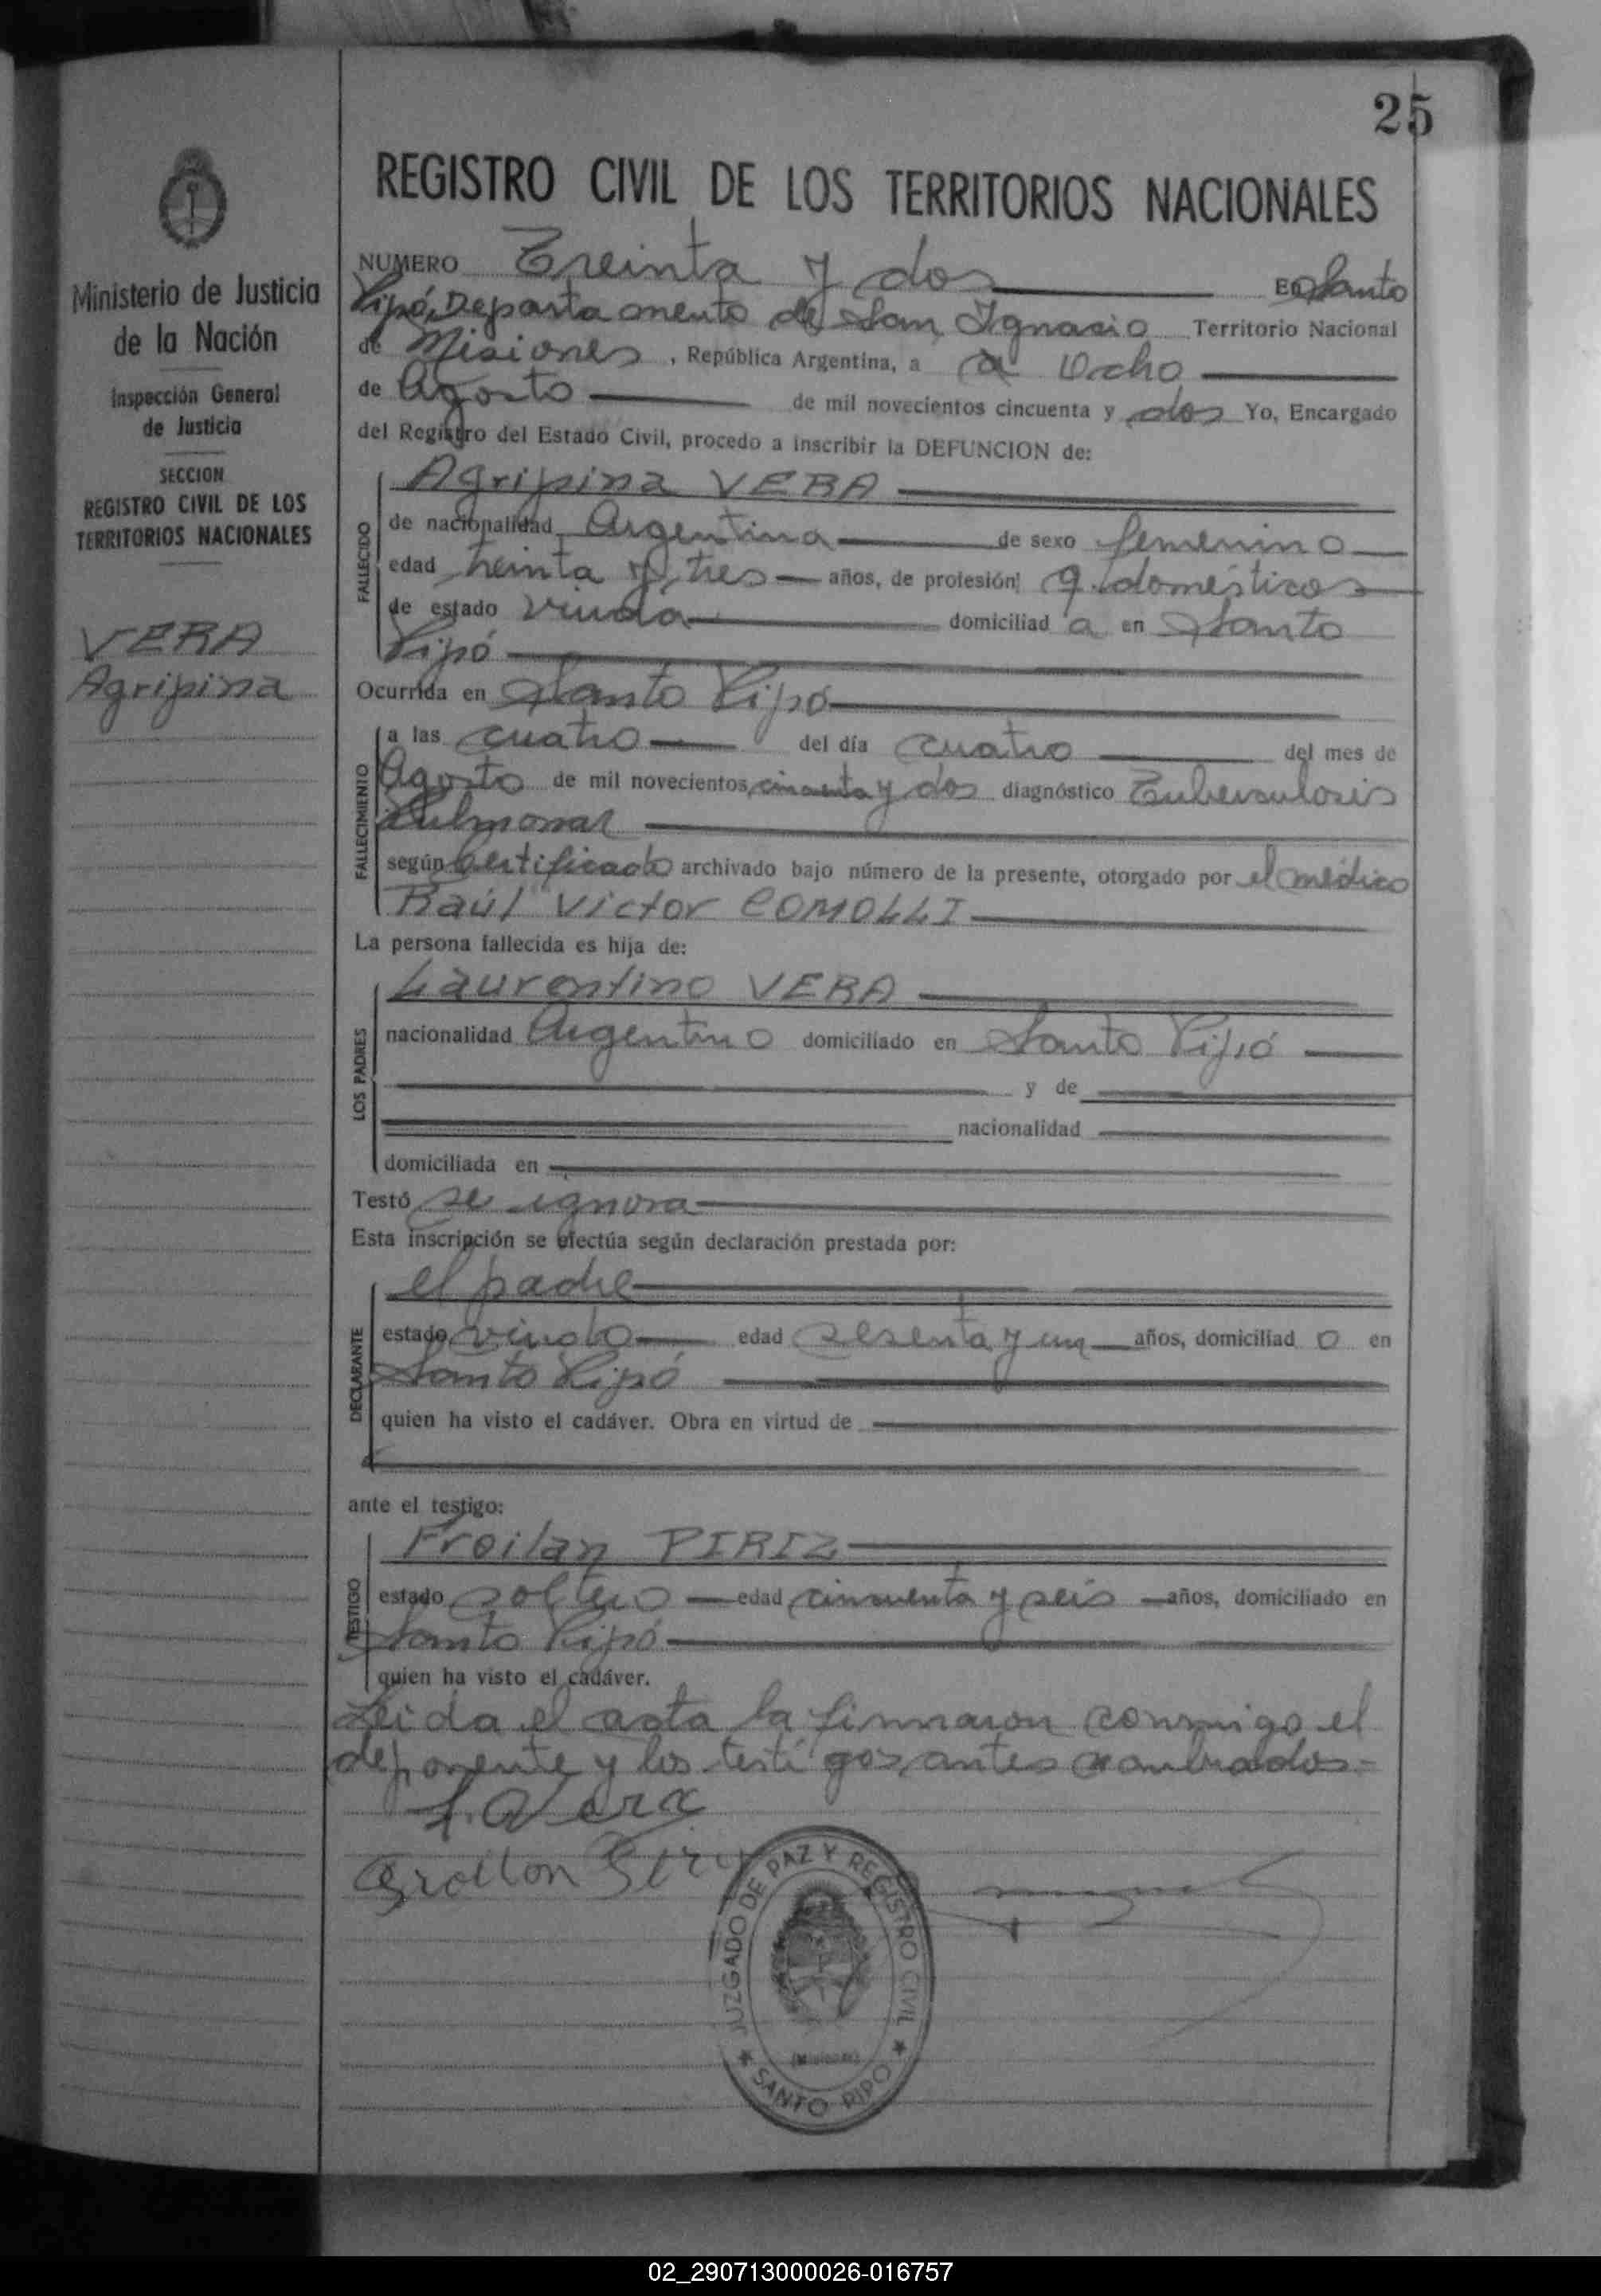 25
REGISTRO CIVIL DE LOS TERRITORIOS NACIONALES
Ministerio de Justicia
de la Nación
Inspección General
de Justicia
SECCION
REGISTRO CIVIL DE LOS
TERRITORIOS NACIONALES
VERA
Agripina
NUMERO Treinta y dos En Santo
Pipó, Departamento de San Ignacio Territorio Nacional
de Misiones, República Argentina, a a Ocho
de Agosto de mil novecientos cincuenta y dos Yo, Encargado
del Registro del Estado Civil, procedo a inscribir la DEFUNCION de:
FALLECIDO
Agripina VERA
de nacionalidad Argentina de sexo femenino
edad treinta y tres años, de profesión q. domésticos
de estado viuda domiciliad a en Santo
Pipó
Ocurrida en Santo Pipó
FALLECIMIENTO
a las cuatro del día cuatro del mes de
Agosto de mil novecientos cincuenta y dos diagnóstico Tuberculosis
Pulmonar
según Certificado archivado bajo número de la presente, otorgado por el médico
Raúl Victor COMOLLI
La persona fallecida es hija de:
LOS PADRES
Laurentino VERA
nacionalidad Argentino domiciliado en Santo Pipó
y de
nacionalidad
domiciliada en
Testó se ignora
Esta inscripción se efectúa según declaración prestada por:
DECLARANTE
el padre
estado viudo edad sesenta y un años, domiciliad o en
Santo Pipó
quien ha visto el cadáver. Obra en virtud de
ante el testigo:
TESTIGO
Froilan PIRIZ
estado soltero edad cincuenta y seis años, domiciliado en
Santo Pipó
quien ha visto el cadáver.
Leida el acta la firmaron conmigo el
deponente y los testigos antes nombrados.=
L. Vera
JUZGADO DE PAZ Y REGISTRO CIVIL
(Misiones)
★ SANTO PIPO ★
02_290713000026-016757